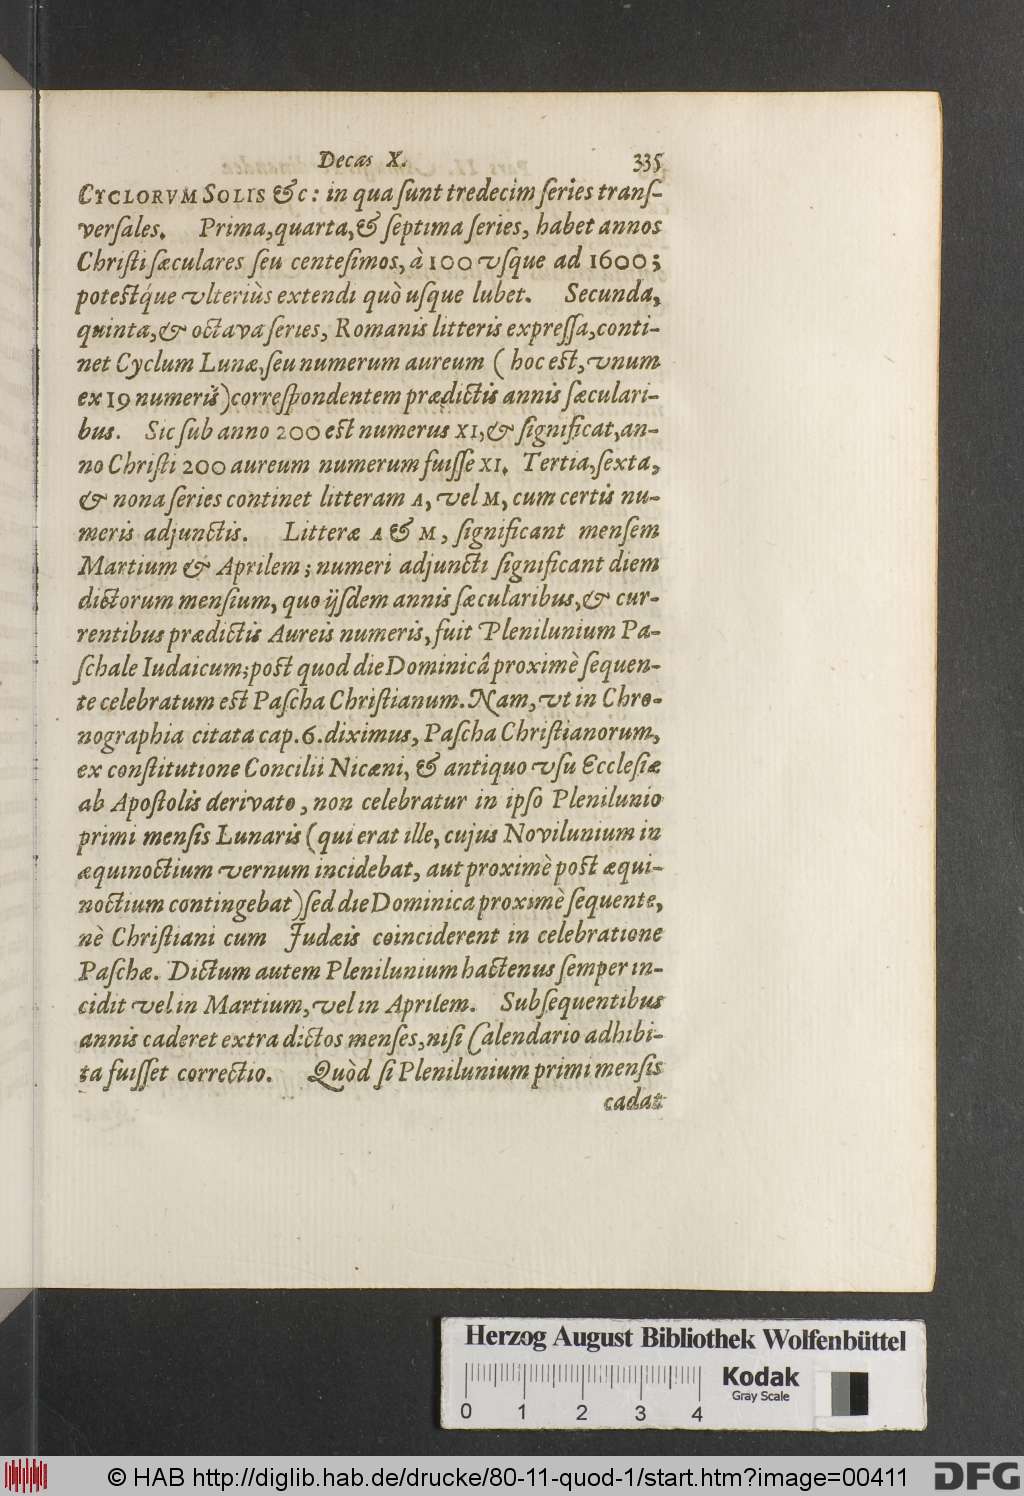 Decas X. 335
CYCLORVM SOLIS &c: in qua ſunt tredecim ſeries tranſ-
verſales. Prima, quarta, & ſeptima ſeries, habet annos
Chriſti ſæculares ſeu centeſimos, à 100 vſque ad 1600;
poteſtq́ue vlteriùs extendi quò uſque lubet. Secunda,
quinta, & octava ſeries, Romanis litteris expreſſa, conti-
net Cyclum Lunæ, ſeu numerum aureum ( hoc eſt, vnum
ex 19 numeris) correſpondentem prædictis annis ſæculari-
bus. Sic ſub anno 200 eſt numerus XI, & ſignificat, an-
no Chriſti 200 aureum numerum fuiſſe XI. Tertia, ſexta,
& nona ſeries continet litteram A, vel M, cum certis nu-
meris adjunctis. Litteræ A & M, ſignificant menſem
Martium & Aprilem; numeri adjuncti ſignificant diem
dictorum menſium, quo ijſdem annis ſæcularibus, & cur-
rentibus prædictis Aureis numeris, fuit Plenilunium Pa-
ſchale Iudaicum; poſt quod die Dominicâ proximè ſequen-
te celebratum eſt Paſcha Chriſtianum. Nam, vt in Chro-
nographia citata cap. 6. diximus, Paſcha Chriſtianorum,
ex conſtitutione Concilii Nicæni, & antiquo vſu Eccleſiæ
ab Apoſtolis derivato, non celebratur in ipſo Plenilunio
primi menſis Lunaris (qui erat ille, cujus Novilunium in
æquinoctium vernum incidebat, aut proximè poſt æqui-
noctium contingebat) ſed die Dominica proximè ſequente,
nè Chriſtiani cum Judæis coinciderent in celebratione
Paſchæ. Dictum autem Plenilunium hactenus ſemper in-
cidit vel in Martium, vel in Aprilem. Subſequentibus
annis caderet extra dictos menſes, niſi Calendario adhibi-
ta fuiſſet correctio. Quòd ſi Plenilunium primi menſis
cadat
Herzog August Bibliothek Wolfenbüttel
Kodak
Gray Scale
0 1 2 3 4
© HAB http://diglib.hab.de/drucke/80-11-quod-1/start.htm?image=00411
DFG